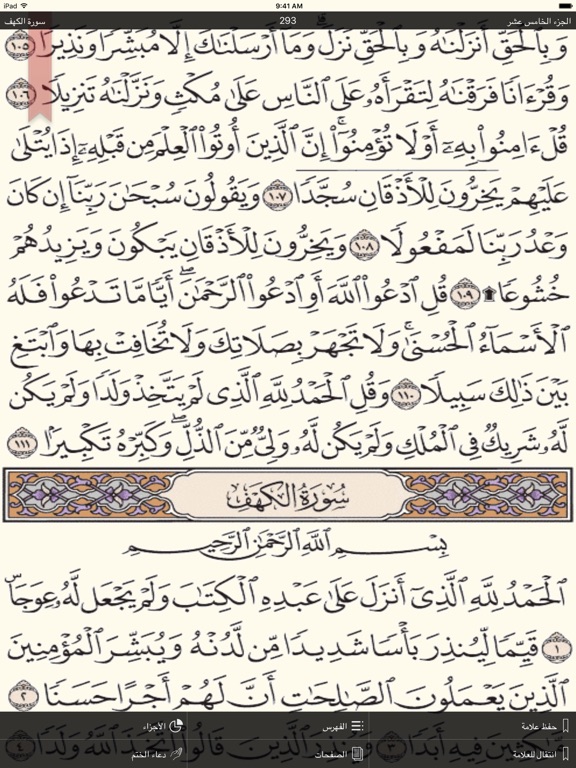 iPad 9:41 AM
سورة الكهف 293 الجزء الخامس عشر
وَبِٱلْحَقِّ أَنزَلْنَٰهُ وَبِٱلْحَقِّ نَزَلَ ۗ وَمَآ أَرْسَلْنَٰكَ إِلَّا مُبَشِّرًا وَنَذِيرًا ١٠٥
وَقُرْءَانًا فَرَقْنَٰهُ لِتَقْرَأَهُۥ عَلَى ٱلنَّاسِ عَلَىٰ مُكْثٍ وَنَزَّلْنَٰهُ تَنزِيلًا ١٠٦
قُلْ ءَامِنُوا۟ بِهِۦٓ أَوْ لَا تُؤْمِنُوٓا۟ ۚ إِنَّ ٱلَّذِينَ أُوتُوا۟ ٱلْعِلْمَ مِن قَبْلِهِۦٓ إِذَا يُتْلَىٰ
عَلَيْهِمْ يَخِرُّونَ لِلْأَذْقَانِ سُجَّدًا ١٠٧ وَيَقُولُونَ سُبْحَٰنَ رَبِّنَآ إِن كَانَ
وَعْدُ رَبِّنَا لَمَفْعُولًا ١٠٨ وَيَخِرُّونَ لِلْأَذْقَانِ يَبْكُونَ وَيَزِيدُهُمْ
خُشُوعًا ۩ ١٠٩ قُلِ ٱدْعُوا۟ ٱللَّهَ أَوِ ٱدْعُوا۟ ٱلرَّحْمَٰنَ ۖ أَيًّا مَّا تَدْعُوا۟ فَلَهُ
ٱلْأَسْمَآءُ ٱلْحُسْنَىٰ ۚ وَلَا تَجْهَرْ بِصَلَاتِكَ وَلَا تُخَافِتْ بِهَا وَٱبْتَغِ
بَيْنَ ذَٰلِكَ سَبِيلًا ١١٠ وَقُلِ ٱلْحَمْدُ لِلَّهِ ٱلَّذِى لَمْ يَتَّخِذْ وَلَدًا وَلَمْ يَكُن
لَّهُۥ شَرِيكٌ فِى ٱلْمُلْكِ وَلَمْ يَكُن لَّهُۥ وَلِىٌّ مِّنَ ٱلذُّلِّ ۖ وَكَبِّرْهُ تَكْبِيرًۢا ١١١
سُورَةُ الكَهْفِ
بِسْمِ ٱللَّهِ ٱلرَّحْمَٰنِ ٱلرَّحِيمِ
ٱلْحَمْدُ لِلَّهِ ٱلَّذِىٓ أَنزَلَ عَلَىٰ عَبْدِهِ ٱلْكِتَٰبَ وَلَمْ يَجْعَل لَّهُۥ عِوَجَاۜ
١ قَيِّمًا لِّيُنذِرَ بَأْسًا شَدِيدًا مِّن لَّدُنْهُ وَيُبَشِّرَ ٱلْمُؤْمِنِينَ
ٱلَّذِينَ يَعْمَلُونَ ٱلصَّٰلِحَٰتِ أَنَّ لَهُمْ أَجْرًا حَسَنًا ٢
حفظ علامة الفهرس الأجزاء
فِيهِ أَبَدًا ٣ ٱلَّذِينَ قَالُوا۟ ٱللَّهُ وَلَدًا ٤
انتقال للعلامة الصفحات دعاء الختم